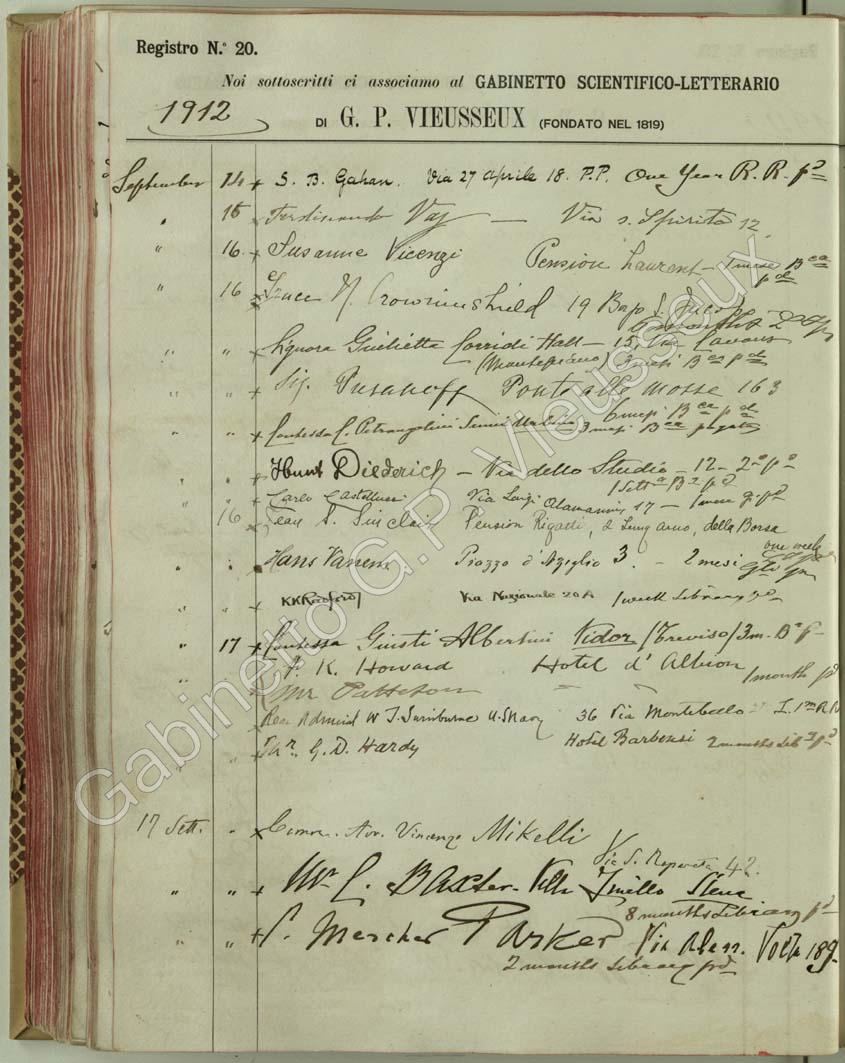 Registro N.° 20.
Noi sottoscritti ci associamo al GABINETTO SCIENTIFICO-LETTERARIO
1912
DI G. P. VIEUSSEUX (FONDATO NEL 1819)
September 14 + S. B. Gahan. Via 27 Aprile 18. P.P. One Year R.R. pd
" 15 Ferdinando Vaj — Via S. Spirito 12
" 16 + Susanne Vicenzi Pension Laurent – 1 mese Bca pd
" 16 M. Crowninshield 19 Borgo S.
" " + Signora Giulietta Hall – 15, Via Cavour
(Montepiano) 3 mesi Bca pd
" " + Sig. Ponte alle Mosse 163
6 mesi Bca pd
" " + Contessa C. Petrangolini 3 mesi Bca pagato
" " Hunt Diederich – Via dello Studio – 12 – 2° po
1 Sett Ba pd
" " + Carlo Castellucci Via Luigi Alamanni 17 – 1 mese g. pd
16 Jean S. Sinclair Pension Rigatti, 2 Lung'arno, della Borsa
one week
" " Hans Piazza d'Azeglio 3. – 2 mesi
" " + KK Redford Via Nazionale 20A 1 week Library pd
" 17 + Contessa Giusti Albertini Vidor (Treviso) 3 m. Ba p
" K. Howard Hotel d'Albion 1 month pd
" Mr Patteson " "
Rear Admiral W. T. Swinburne U.S Navy 36 Via Montebello I. 1m R.R
" " + Thr. G. D. Hardy Hotel Barbensi 2 months Lib pd
17 Sett. " x Comm. Avv. Vincenzo Mikelli
Via S. Reparata 42.
" " + Mr C. Baxter – Villa Siena
8 months Library pd
" " + S. Mercher Parker Via Aless. Volta 189.
2 months Library prd
Gabinetto G.P. Vieusseux